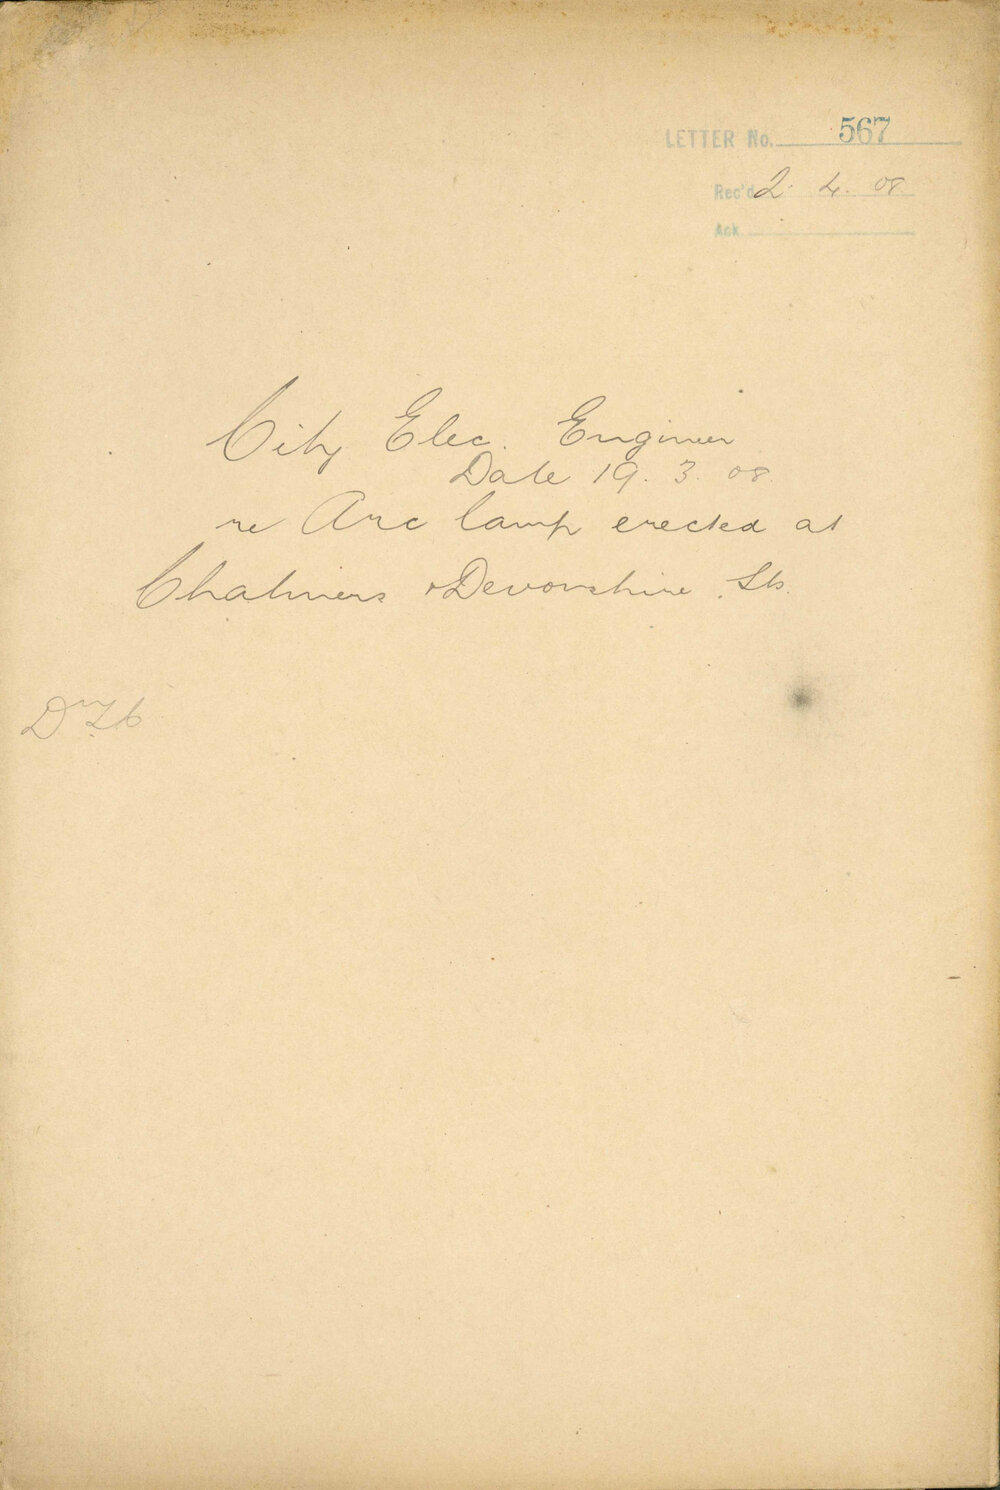 LETTER No. 567
Rec'd 2. 4. 08
Ack
City Elec. Engineer
Date 19. 3. 08.
re Arc lamp erected at
Chalmers & Devonshire Sts.